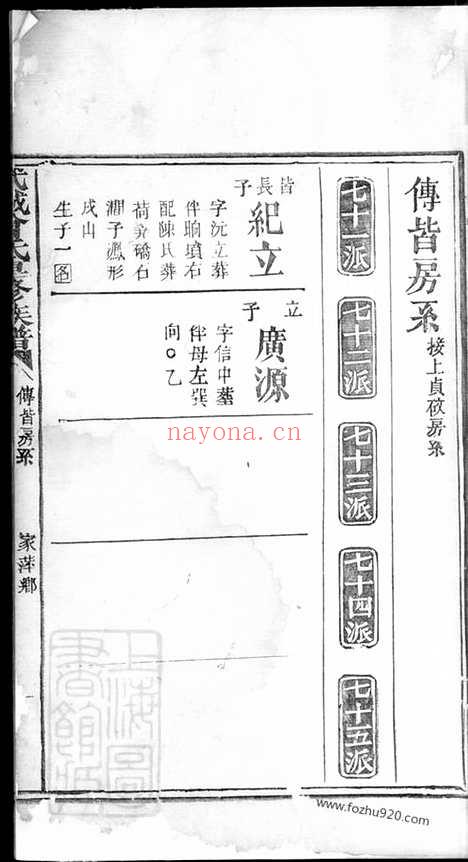 傳皆房系 接上貞砍房系
七十一派
七十二派
七十三派
七十四派
七十五派
皆長子
紀立
字沅立葬
伴昫墳右
配陳氏葬
荷
橋右
澗子
形
戌山
生子一
立子
廣源
字信中墓
伴母左巽
向〇乙
氏
修族譜
傳皆房系
家萍鄉
上海圖書館藏
nayona.cn
www.fozhu920.com